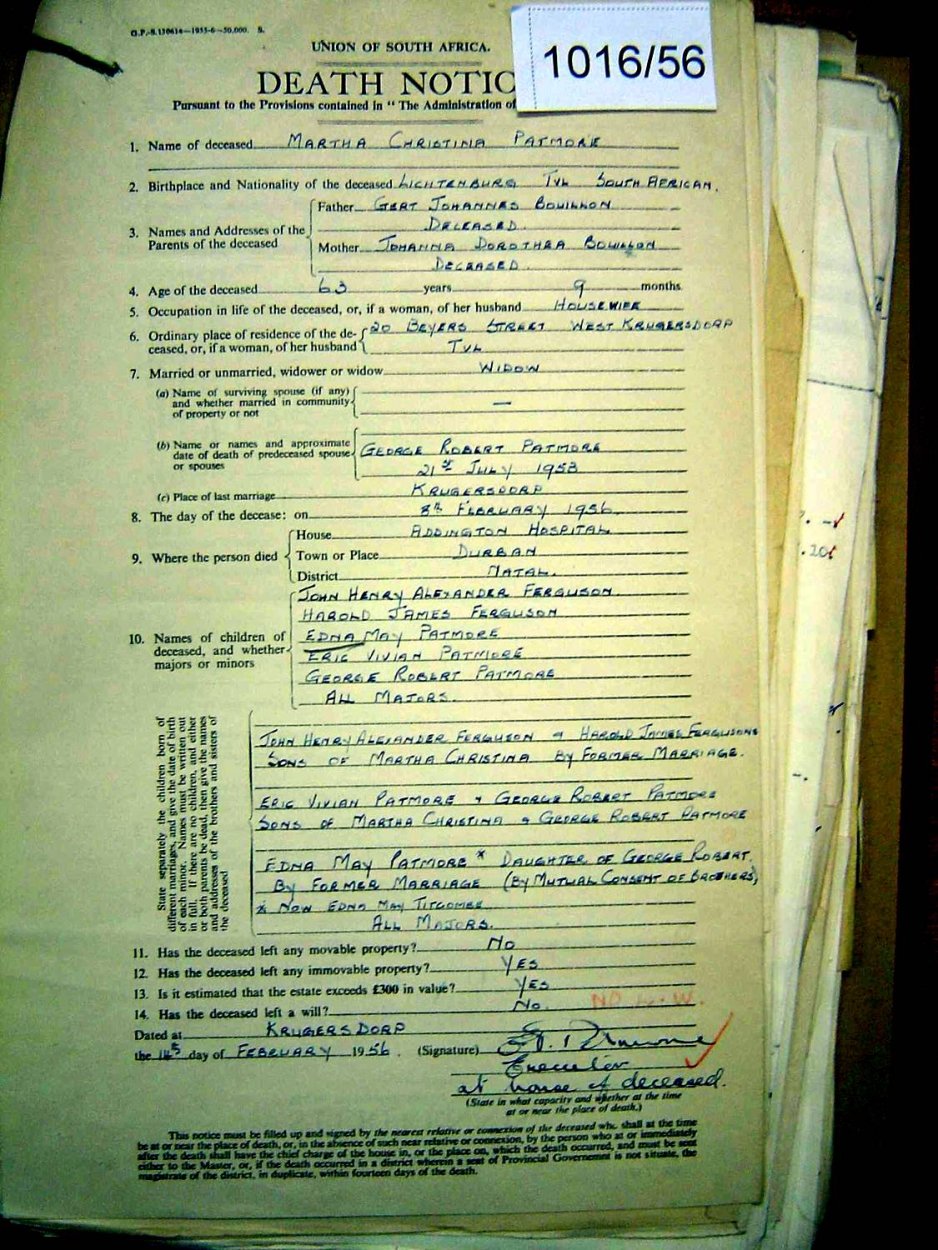 G.P.-S.130614—1955-6—50,000. S.
1016/56
UNION OF SOUTH AFRICA.
DEATH NOTIC
Pursuant to the Provisions contained in "The Administration of
1. Name of deceased MARTHA CHRISTINA PATMORE
2. Birthplace and Nationality of the deceased LICHTENBURG TVL SOUTH AFRICAN.
3. Names and Addresses of the Parents of the deceased
Father GERT JOHANNES BOUILLON
DECEASED.
Mother JOHANNA DOROTHEA BOUILLON
DECEASED.
4. Age of the deceased 63 years 9 months
5. Occupation in life of the deceased, or, if a woman, of her husband HOUSEWIFE
6. Ordinary place of residence of the de- 20 BEYERS STREET WEST KRUGERSDORP
ceased, or, if a woman, of her husband TVL
7. Married or unmarried, widower or widow WIDOW
(a) Name of surviving spouse (if any)
and whether married in community —
of property or not
(b) Name or names and approximate GEORGE ROBERT PATMORE
date of death of predeceased spouse
or spouses 21st JULY 1953
(c) Place of last marriage KRUGERSDORP
8. The day of the decease: on 8th FEBRUARY 1956.
9. Where the person died
House ADDINGTON HOSPITAL
Town or Place DURBAN
District NATAL.
10. Names of children of
deceased, and whether
majors or minors
JOHN HENRY ALEXANDER FERGUSON.
HAROLD JAMES FERGUSON
EDNA MAY PATMORE
ERIC VIVIAN PATMORE
GEORGE ROBERT PATMORE
ALL MAJORS.
State separately the children born of
different marriages, and give the date of birth
of each minor. Names must be written out
in full. If there are no children, and either
or both parents be dead, then give the names
and addresses of the brothers and sisters of
the deceased
JOHN HENRY ALEXANDER FERGUSON & HAROLD JAMES FERGUSONS
SONS OF MARTHA CHRISTINA BY FORMER MARRIAGE.
ERIC VIVIAN PATMORE & GEORGE ROBERT PATMORE
SONS OF MARTHA CHRISTINA & GEORGE ROBERT PATMORE
EDNA MAY PATMORE * DAUGHTER OF GEORGE ROBERT.
BY FORMER MARRIAGE (BY MUTUAL CONSENT OF BROTHERS)
* NOW EDNA MAY TITCOMBE
ALL MAJORS.
11. Has the deceased left any movable property? NO
12. Has the deceased left any immovable property? YES
13. Is it estimated that the estate exceeds £300 in value? YES
14. Has the deceased left a will? NO. NO L.W.
Dated at KRUGERSDORP
the 14th day of FEBRUARY 1956. (Signature)
Executor
at house of deceased.
(State in what capacity and whether at the time
at or near the place of death.)
This notice must be filled up and signed by the nearest relative or connexion of the deceased who shall at the time
be at or near the place of death, or, in the absence of such near relative or connexion, by the person who at or immediately
after the death shall have the chief charge of the house in, or the place on, which the death occurred, and must be sent
either to the Master, or, if the death occurred in a district wherein a seat of Provincial Government is not situate, the
magistrate of the district, in duplicate, within fourteen days of the death.